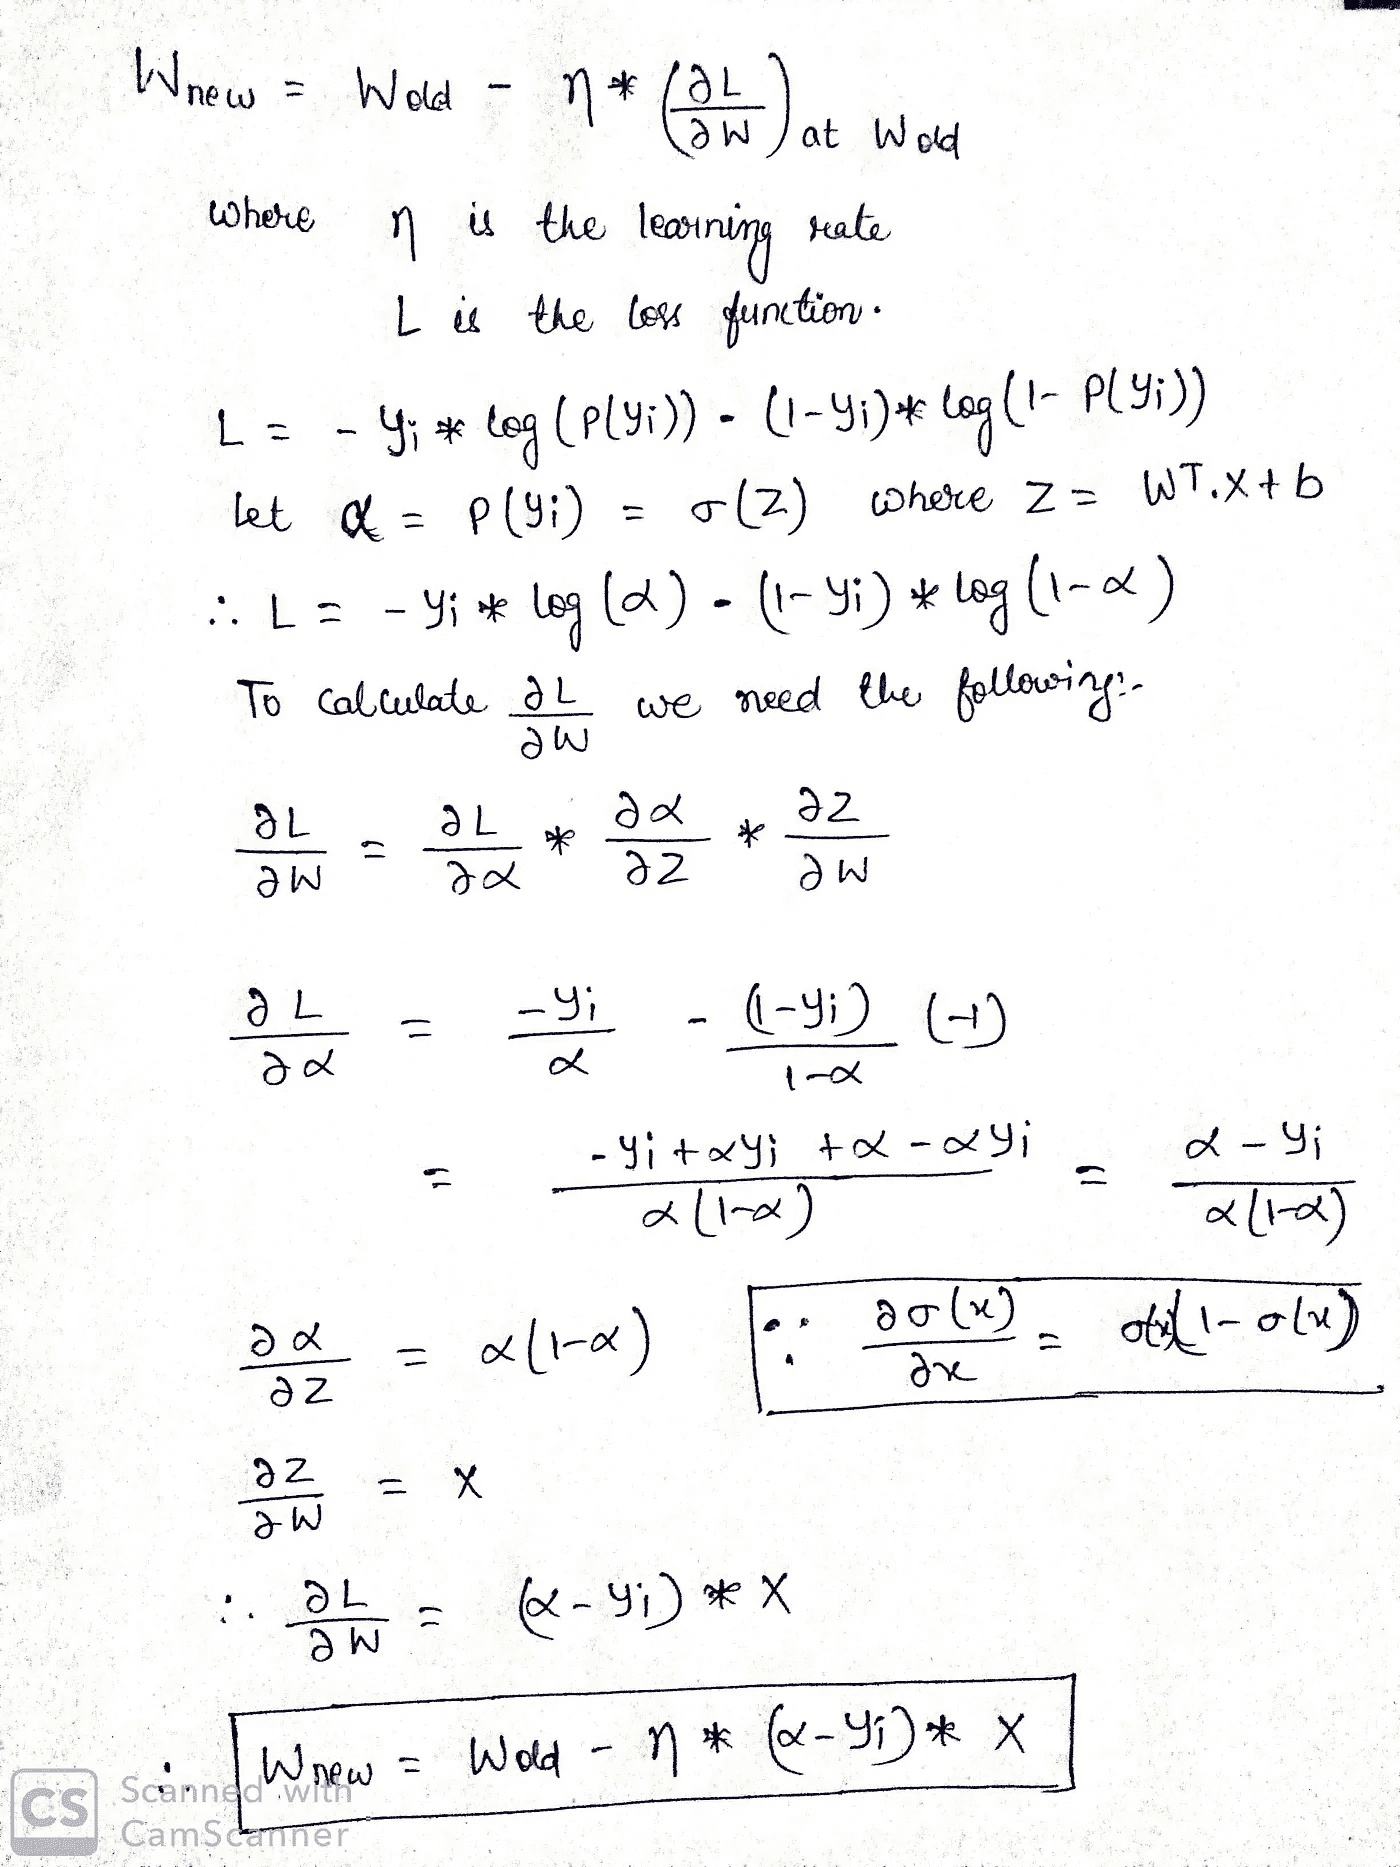 Wnew = Wold - η * (∂L/∂W) at Wold
where η is the learning rate
L is the loss function.
L = - yi * log (P(yi)) - (1-yi) * log (1- P(yi))
let α = P(yi) = σ(Z) where Z = WT.X + b
∴ L = - yi * log (α) - (1-yi) * log (1-α)
To calculate ∂L/∂W we need the following:-
∂L/∂W = ∂L/∂α * ∂α/∂Z * ∂Z/∂W
∂L/∂α = -yi/α - (1-yi)/(1-α) (-1)
= (-yi + αyi + α - αyi)/(α(1-α)) = (α - yi)/(α(1-α))
∂α/∂Z = α(1-α) ∵ ∂σ(x)/∂x = σ(x)(1-σ(x))
∂Z/∂W = X
∴ ∂L/∂W = (α-yi) * X
∴ Wnew = Wold - η * (α-yi) * X
CS Scanned with
CamScanner